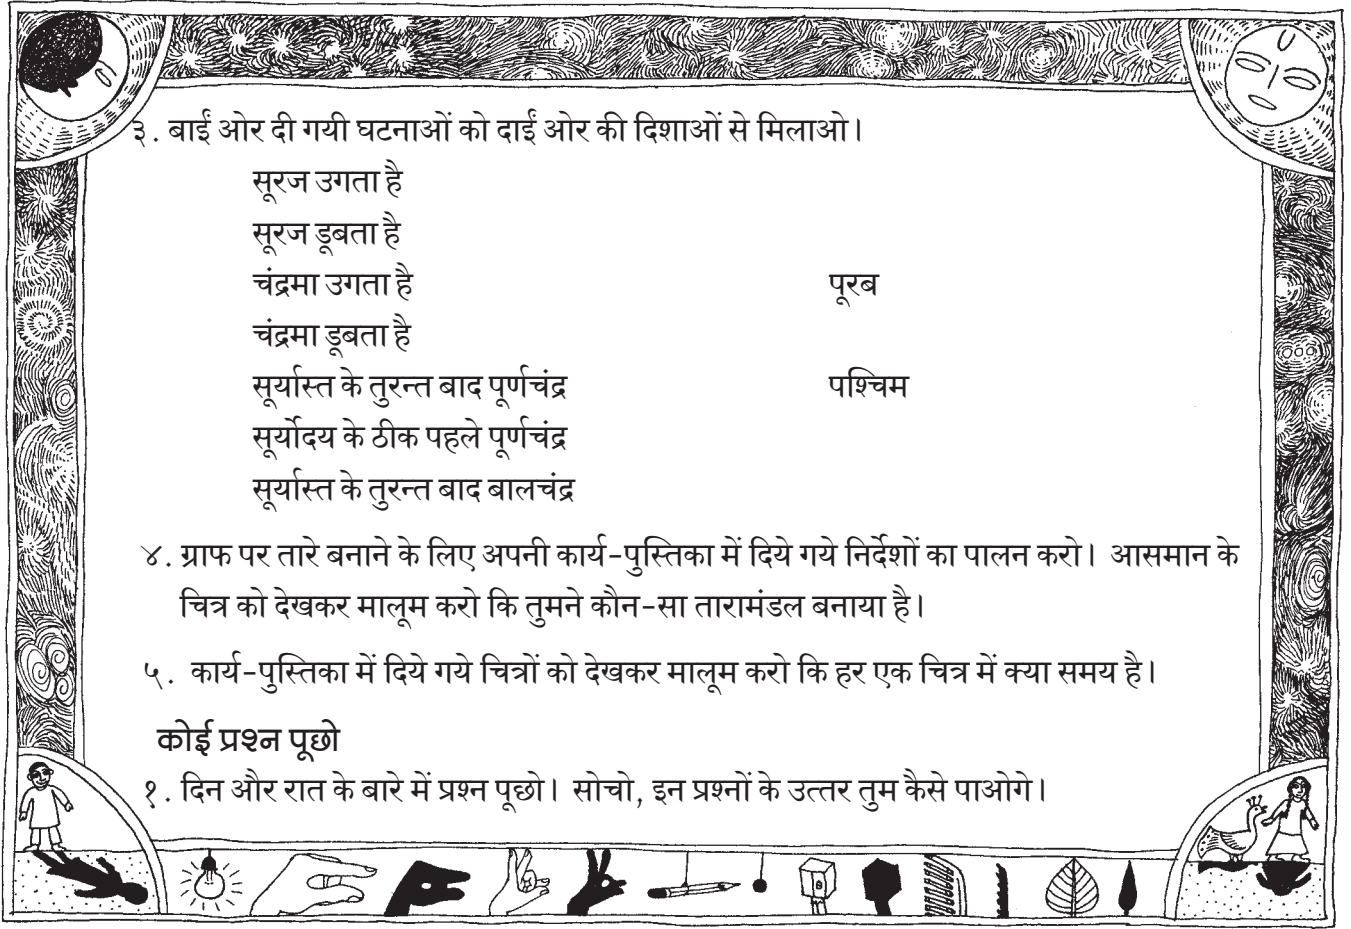 ३. बाईं ओर दी गयी घटनाओं को दाईं ओर की दिशाओं से मिलाओ।
सूरज उगता है
सूरज डूबता है
चंद्रमा उगता है पूरब
चंद्रमा डूबता है
सूर्यास्त के तुरन्त बाद पूर्णचंद्र पश्चिम
सूर्योदय के ठीक पहले पूर्णचंद्र
सूर्यास्त के तुरन्त बाद बालचंद्र
४. ग्राफ पर तारे बनाने के लिए अपनी कार्य-पुस्तिका में दिये गये निर्देशों का पालन करो। आसमान के
चित्र को देखकर मालूम करो कि तुमने कौन-सा तारामंडल बनाया है।
५. कार्य-पुस्तिका में दिये गये चित्रों को देखकर मालूम करो कि हर एक चित्र में क्या समय है।
कोई प्रश्न पूछो
१. दिन और रात के बारे में प्रश्न पूछो। सोचो, इन प्रश्नों के उत्तर तुम कैसे पाओगे।